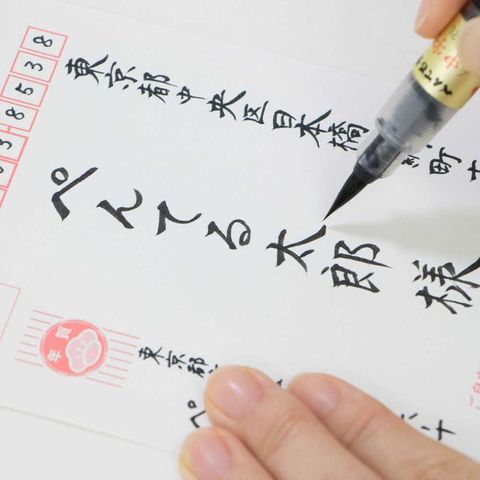 38538
東京都中央区日本橋 町
ぺんてる太郎様
年賀
東京都
ぺ